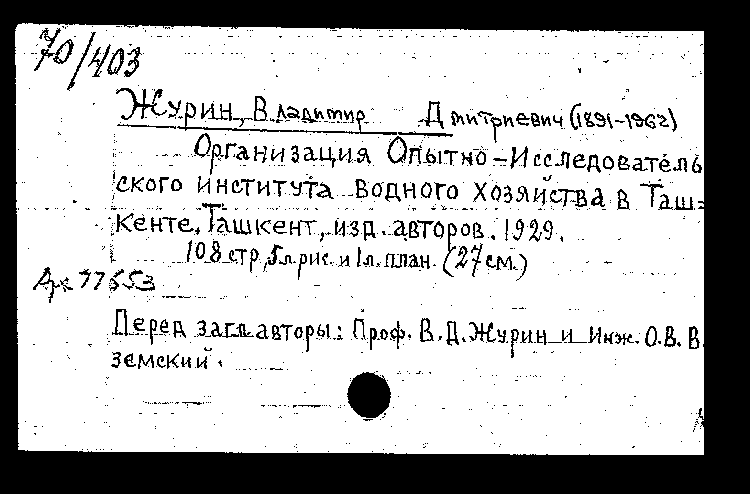 70/403
Журин, Владимир Дмитриевич (1891-1962)
Организация Опытно-Исследователь
ского института водного хозяйства в Таш=
кенте. Ташкент, изд. авторов. 1929.
108 стр, 5л рис. и 1л. план. (27 см.)
77653
Перед загл авторы: Проф. В.Д. Журин и Инж. О.В. В
земский.